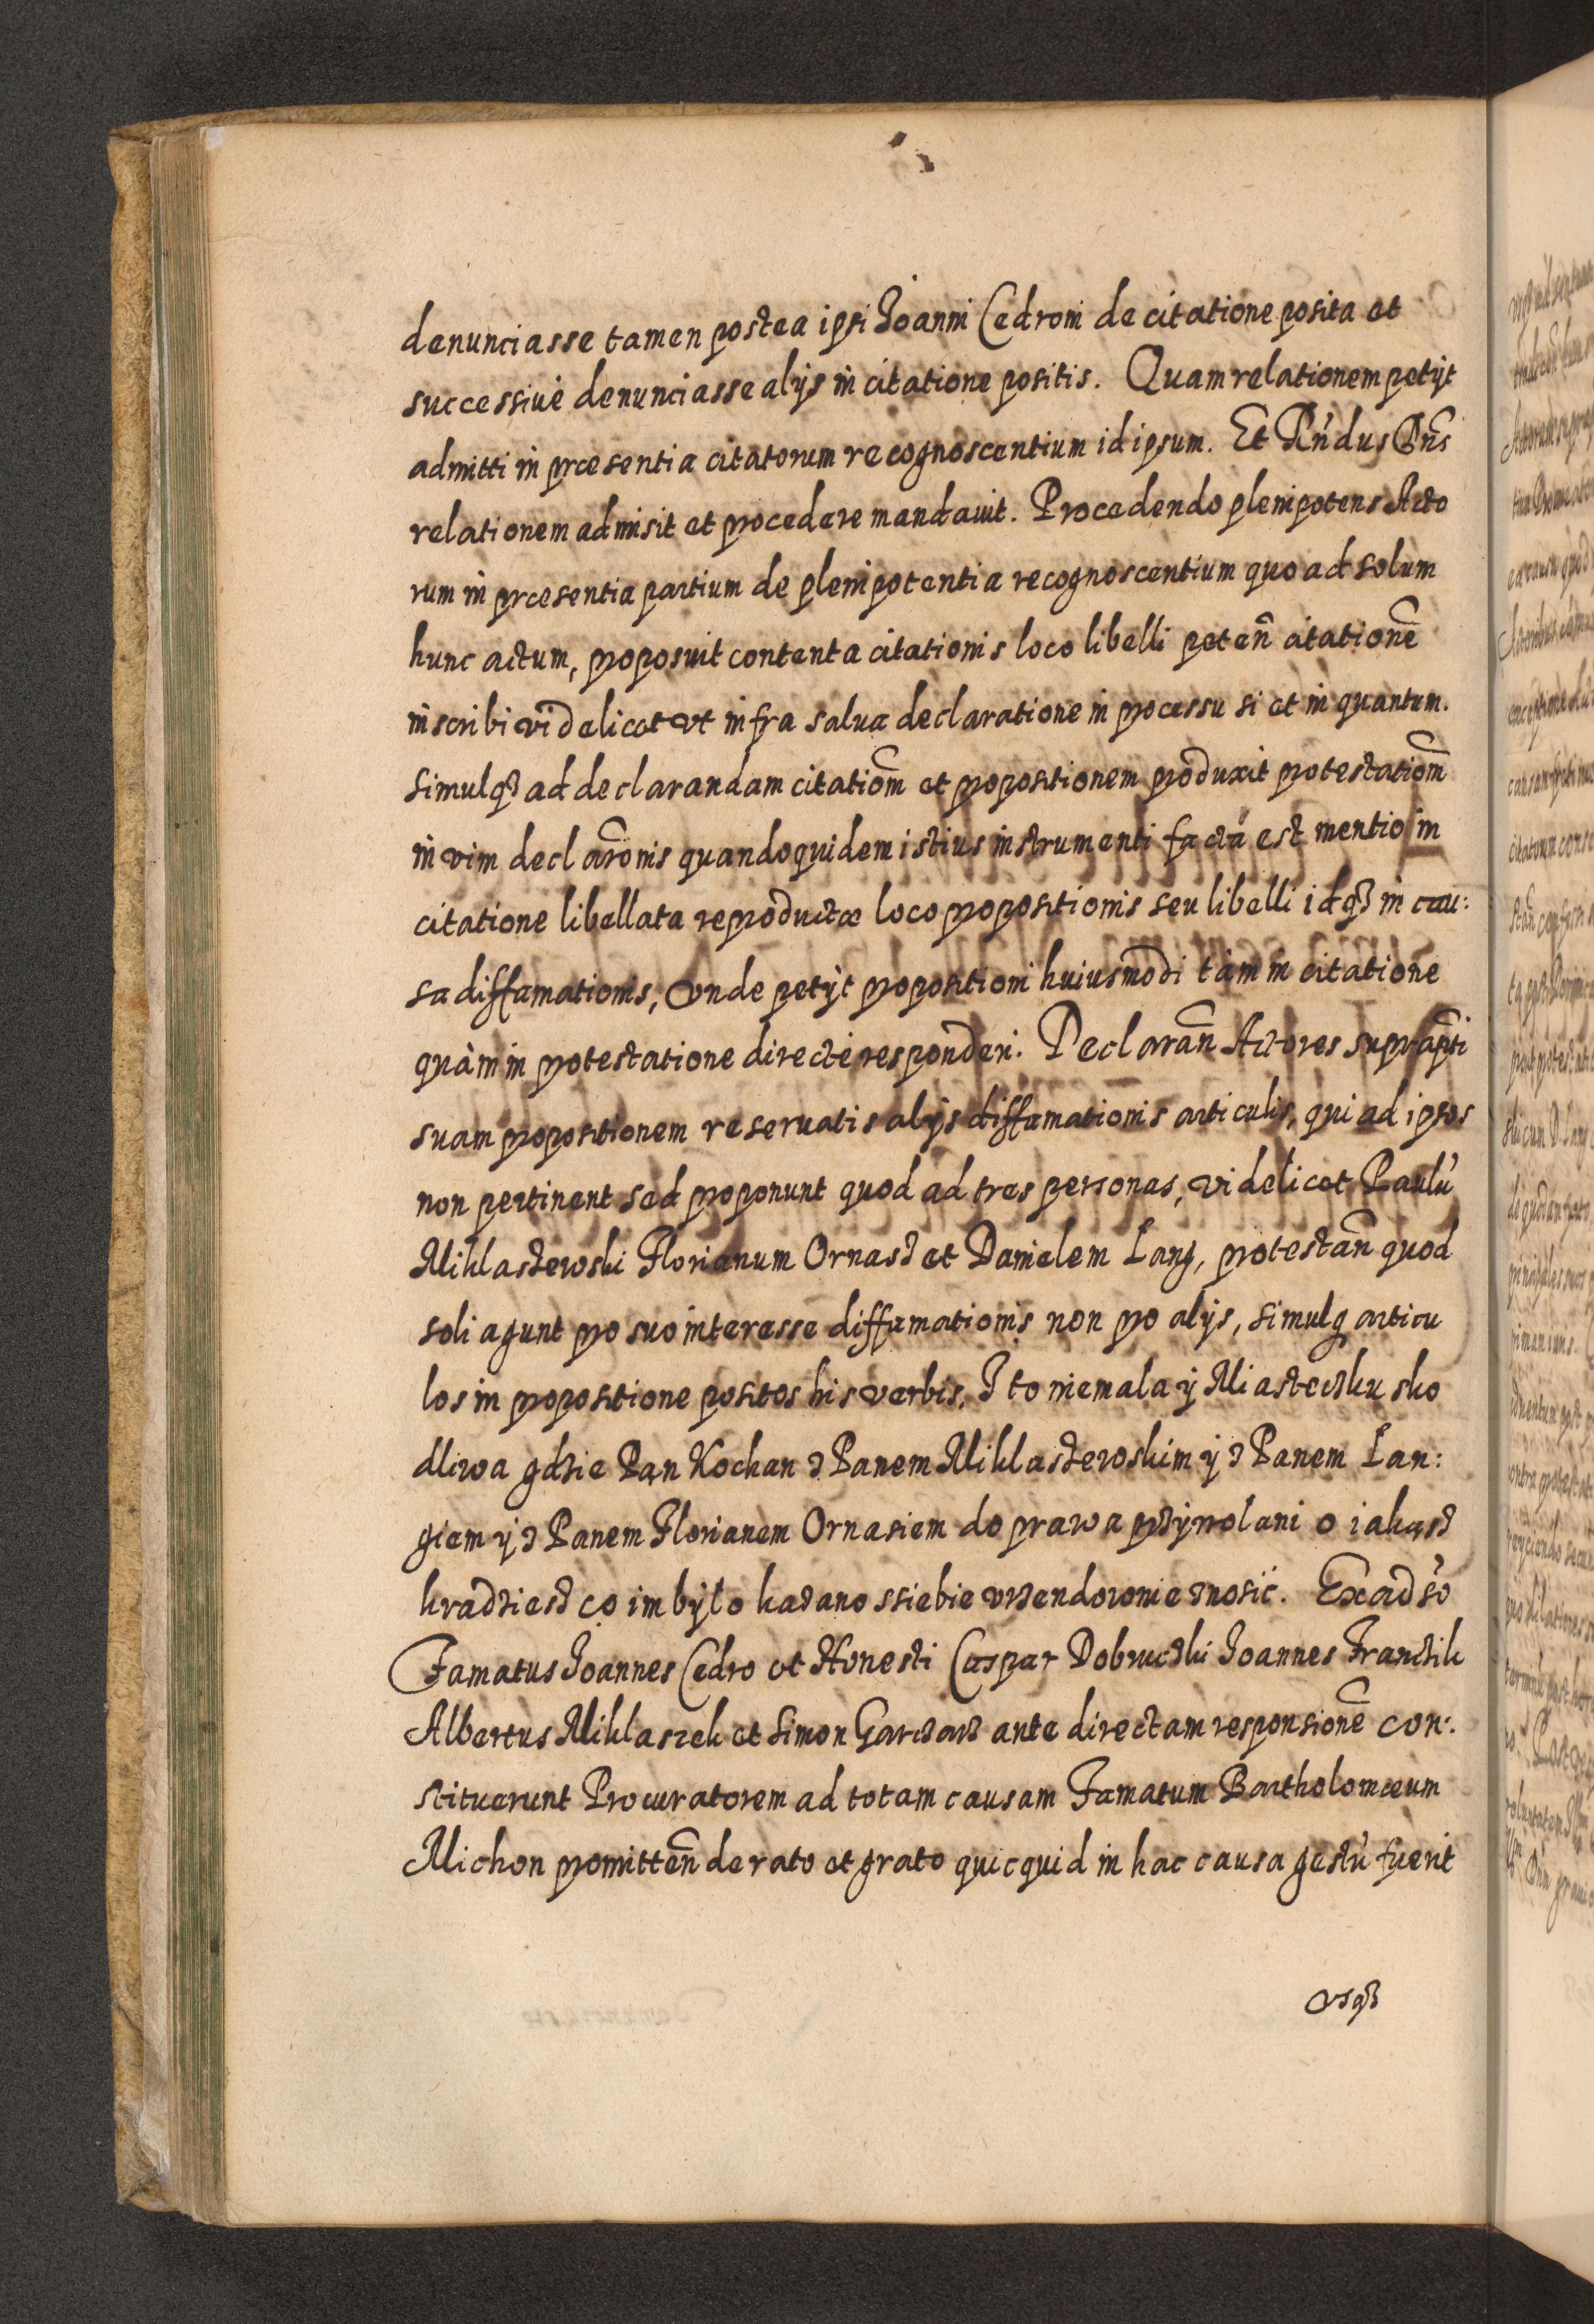 denunciasse tamen postea ipsi Joanni Cedroni de citatione posita et
successiuè denunciasse alijs in citatione positis. Quam relationem petijt
admitti in præsentia citatorum recognoscentium id ipsum. Et Rńdus Dńs
relationem admisit et procedere mandauit. Procedendo plenipotens Acto
rum in præsentia partium de plenipotentia recognoscentium quo ad solum
hunc actum, proposuit contenta citationis loco libelli peteñ citationẽ
inscribi videlicet vt infra salua declaratione in processu si et in quantum.
simulqȝ ad declarandam citatiom̃ et propositionem produxit protestatiom̃
in vim declarõnis quandoquidem istius instrumenti facta est mentio in
citatione libellata reproductæ loco propositionis seu libelli idqȝ in cau:
sa diffamationis, Vnde petijt propositioni huiusmodi tàm in citatione
quàm in protestatione directè responderi. Declarañ Actores supraptī
suam propositionem reseruatis alijs diffamationis articulis, qui ad ipsos
non pertinent sed proponunt quod ad tres personas, videlicet Paulú
Miklaszewski Florianum Ornasz et Danielem Lang, protestañ quod
soli agunt pro suo interesse diffamationis non pro alijs, simulq articu
los in propositione positos his verbis. J to niemala ÿ Miasteczku sko
dliwa gdzie Pan Kochan z Panem Miklaszewskim ÿ z Panem Lan:
giem ÿ z Panem Florianem Ornasiem do prawa przÿwolani o iakąsz
kradziesz co im bÿło kazano ssiebie vrzendownie znosić. Exadso
Famatus Joannes Cedro et Honesti Caspar Dobruczki Joannes Franczik
Albertus Miklaszek et Simon Garczarz ante directam responsionẽ con:
stituerunt Procuratorem ad totam causam Famatum Bartholomæum
Michon promitteñ de rato et grato quicquid in hac causa gestú fuerit
vsqȝ